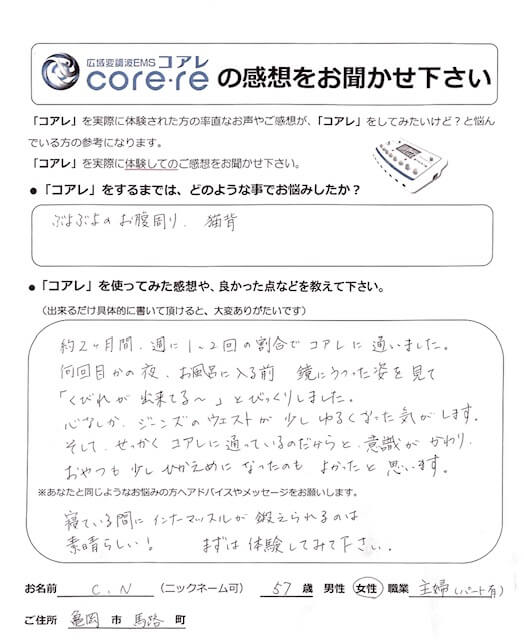 広域変調波EMS コアレ
core・re の感想をお聞かせ下さい
「コアレ」を実際に体験された方の率直なお声やご感想が、「コアレ」をしてみたいけど？と悩ん
でいる方の参考になります。
「コアレ」を実際に体験してのご感想をお聞かせ下さい。
●「コアレ」をするまでは、どのような事でお悩みしたか？
ぶよぶよのお腹周り、猫背
●「コアレ」を使ってみた感想や、良かった点などを教えて下さい。
（出来るだけ具体的に書いて頂けると、大変ありがたいです）
約2ヶ月間、週に1~2回の割合でコアレに通いました。
何回目かの夜、お風呂に入る前 鏡にうつった姿を見て
「くびれが出来てる～」とびっくりしました。
心なしか、ジーンズのウエストが少しゆるくなった気がします。
そして、せっかくコアレに通っているのだからと、意識がかわり、
おやつも少しひかえめになったのもよかったと思います。
※あなたと同じようなお悩みの方へアドバイスやメッセージをお願いします。
寝ている間にインナーマッスルが鍛えられるのは
素晴らしい！ まずは体験してみて下さい。
お名前 C.N （ニックネーム可） 57 歳 男性 女性 職業 主婦（パート有）
ご住所 亀岡 市 馬路 町